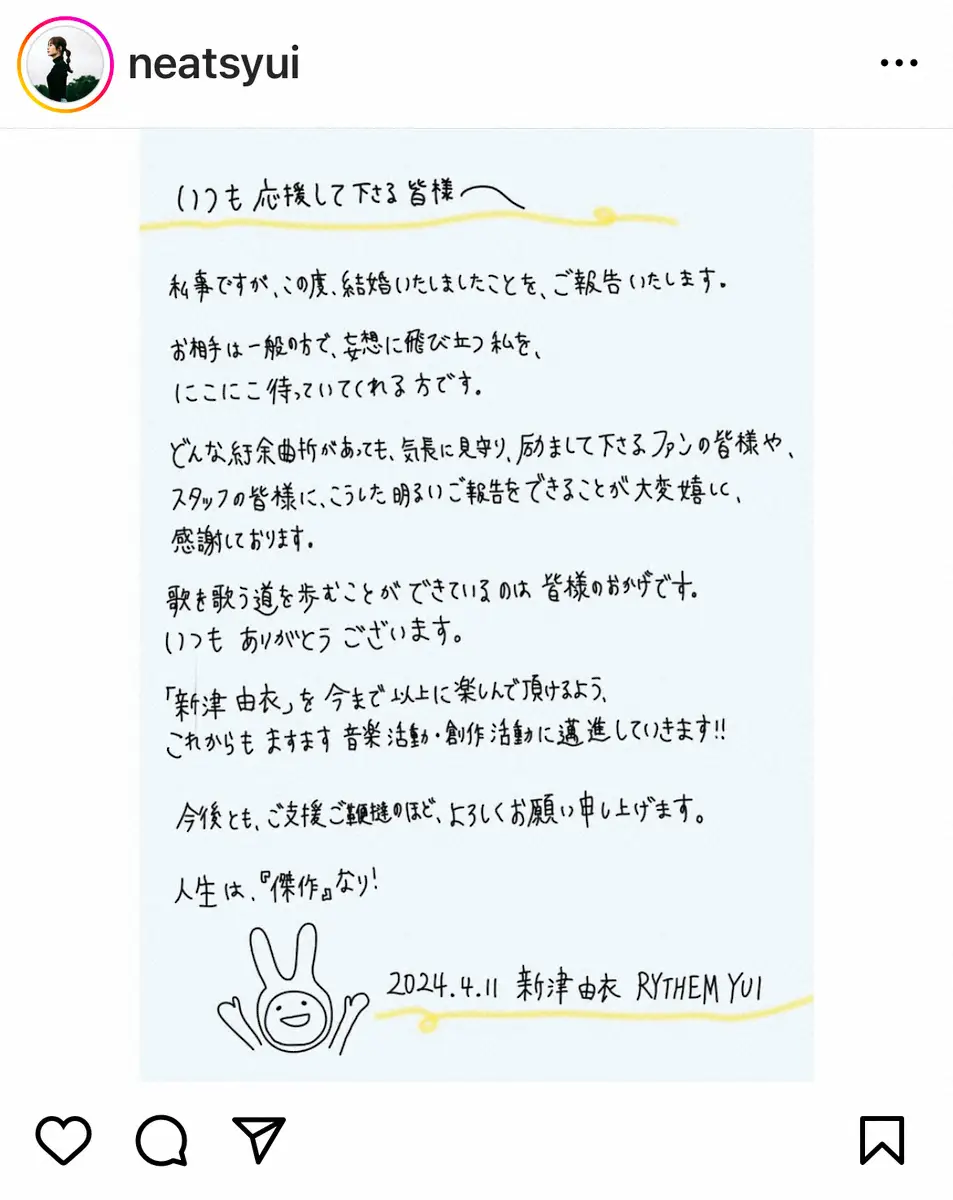 neatsyui
いつも 応援して下さる 皆様へ
私事ですが、この度、結婚いたしましたことを、ご報告いたします。
お相手は一般の方で、妄想に飛び立つ私を、
にこにこ待っていてくれる方です。
どんな紆余曲折があっても、気長に見守り、励まして下さるファンの皆様や、
スタッフの皆様に、こうした明るいご報告をできることが大変嬉しく、
感謝しております。
歌を歌う道を歩むことができているのは 皆様のおかげです。
いつも ありがとう ございます。
「新津 由衣」を 今まで以上に楽しんで頂けるよう、
これからも ますます 音楽活動・創作活動に邁進していきます!!
今後とも、ご支援ご鞭撻のほど、よろしくお願い申し上げます。
人生は、『傑作』なり!
2024.4.11 新津由衣 RYTHEM YUI